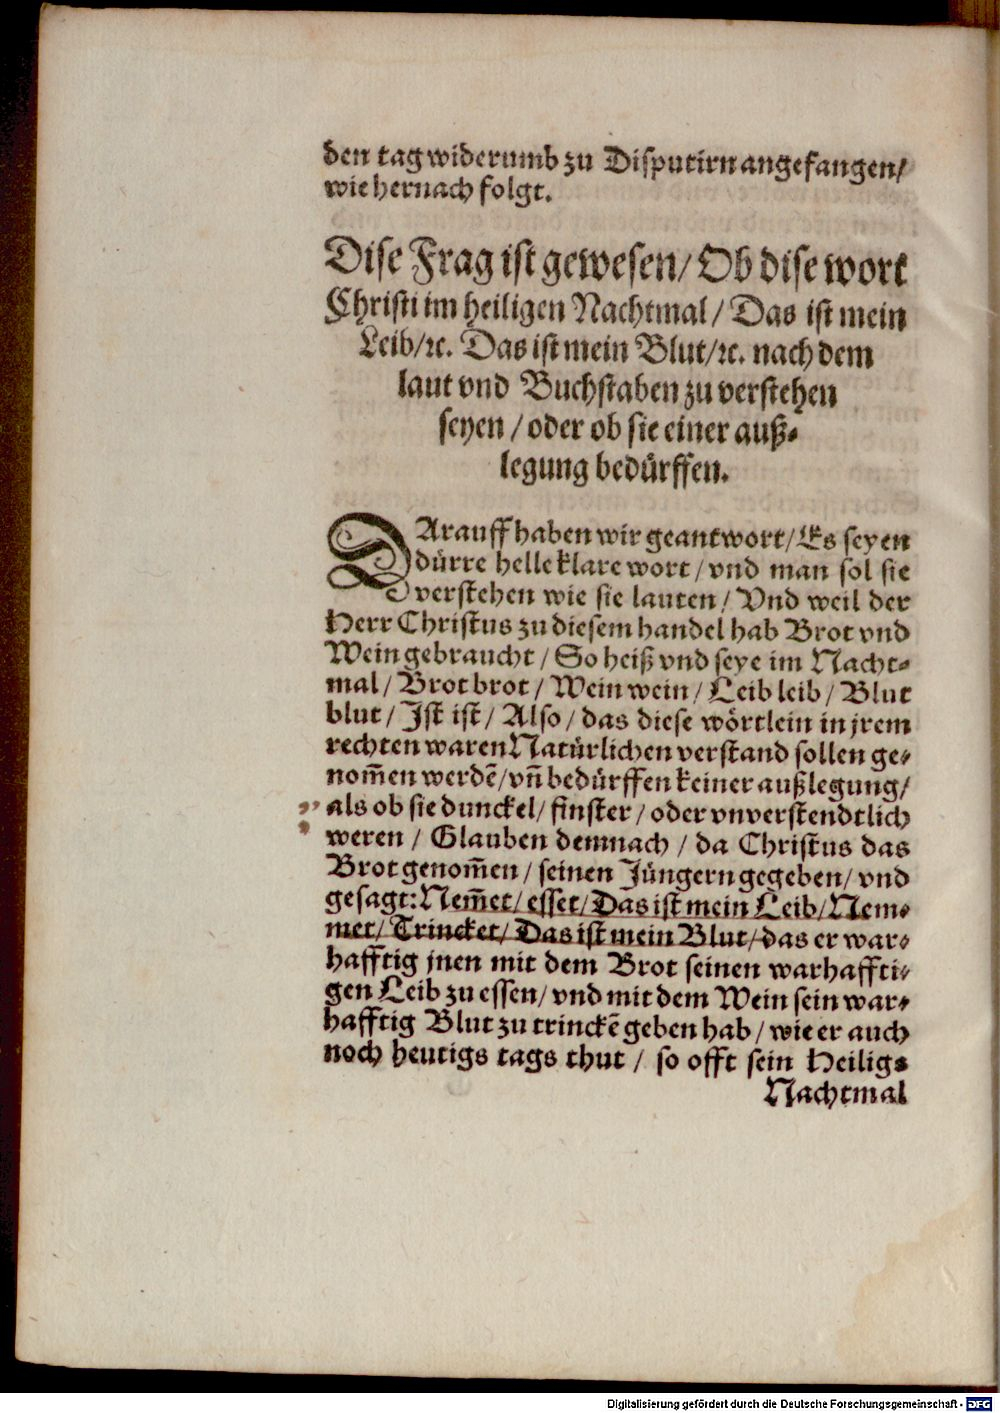 den tag widerumb zu Disputirn angefangen/
wie hernach folgt.
Dise Frag ist gewesen/ Ob dise wort
Christi im heiligen Nachtmal/ Das ist mein
Leib/ ꝛc. Das ist mein Blut/ ꝛc. nach dem
laut vnd Buchstaben zu verstehen
seyen/ oder ob sie einer auß⸗
legung bedürffen.
DArauff haben wir geantwort/ Es seyen
dürre helle klare wort/ vnd man sol sie
verstehen wie sie lauten/ Vnd weil der
Herr Christus zu diesem handel hab Brot vnd
Wein gebraucht/ So heiß vnd seye im Nacht⸗
mal/ Brot brot/ Wein wein/ Leib leib/ Blut
blut/ Ist ist/ Also/ das diese wörtlein in jrem
rechten waren Natürlichen verstand sollen ge⸗
nom̃en werdẽ/ vñ bedürffen keiner außlegung/
als ob sie dunckel/ finster/ oder vnverstendtlich
weren/ Glauben demnach/ da Christus das
Brot genom̃en/ seinen Jüngern gegeben/ vnd
gesagt: Nem̃et/ esset/ Das ist mein Leib/ Nem⸗
met/ Trincket/ Das ist mein Blut/ das er war⸗
hafftig jnen mit dem Brot seinen warhaffti⸗
gen Leib zu essen/ vnd mit dem Wein sein war⸗
hafftig Blut zu trinckẽ geben hab/ wie er auch
noch heutigs tags thut/ so offt sein Heiligs
Nachtmal
Digitalisierung gefördert durch die Deutsche Forschungsgemeinschaft - DFG